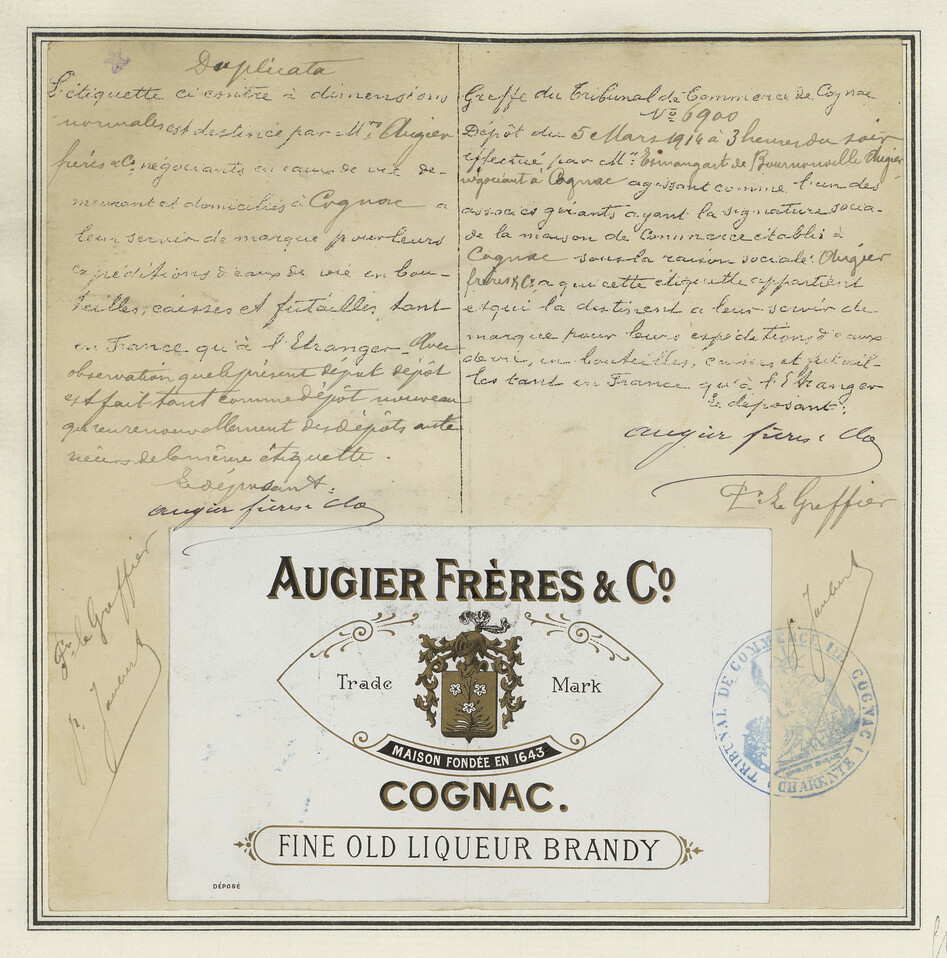 Duplicata
L'étiquette ci contre à dimensions
normales est destinée par Mrs Augier
frères & Co négociants en eaux de vie de-
meurant et domiciliés à Cognac a
leur servir de marque pour leurs
expéditions d'eaux de vie en bou-
teilles, caisses et futailles, tant
en France qu'à l'Etranger. Avec
observation que le présent dépôt dépôt
est fait tant comme dépôt nouveau
qu'en renouvellement des dépôts anté
rieurs de la même étiquette.
Le déposant:
Augier frères & Co
Pr. le Greffier
Greffe du Tribunal de Commerce de Cognac
No 6900
Dépôt du 5 Mars 1914 à 3 heures du soir
effectué par Mr. Esmangart de Bournonville Augier
négociant à Cognac agissant comme l'un des
associés gérants ayant la signature socia-
de la maison de Commerce établie à
Cognac sous la raison sociale: Augier
frères & Co a qui cette étiquette appartient
et qui la destinent a leur servir de
marque pour leurs expéditions d'eaux
de vie, en bouteilles, caisses, et futail-
les tant en France qu'à l'Etranger
Le déposant:
Augier frères & Co
Pr. Le Greffier
AUGIER FRÈRES & Co
Trade Mark
MAISON FONDÉE EN 1643
COGNAC.
FINE OLD LIQUEUR BRANDY
DÉPOSÉ
TRIBUNAL DE COMMERCE DE COGNAC
(CHARENTE)